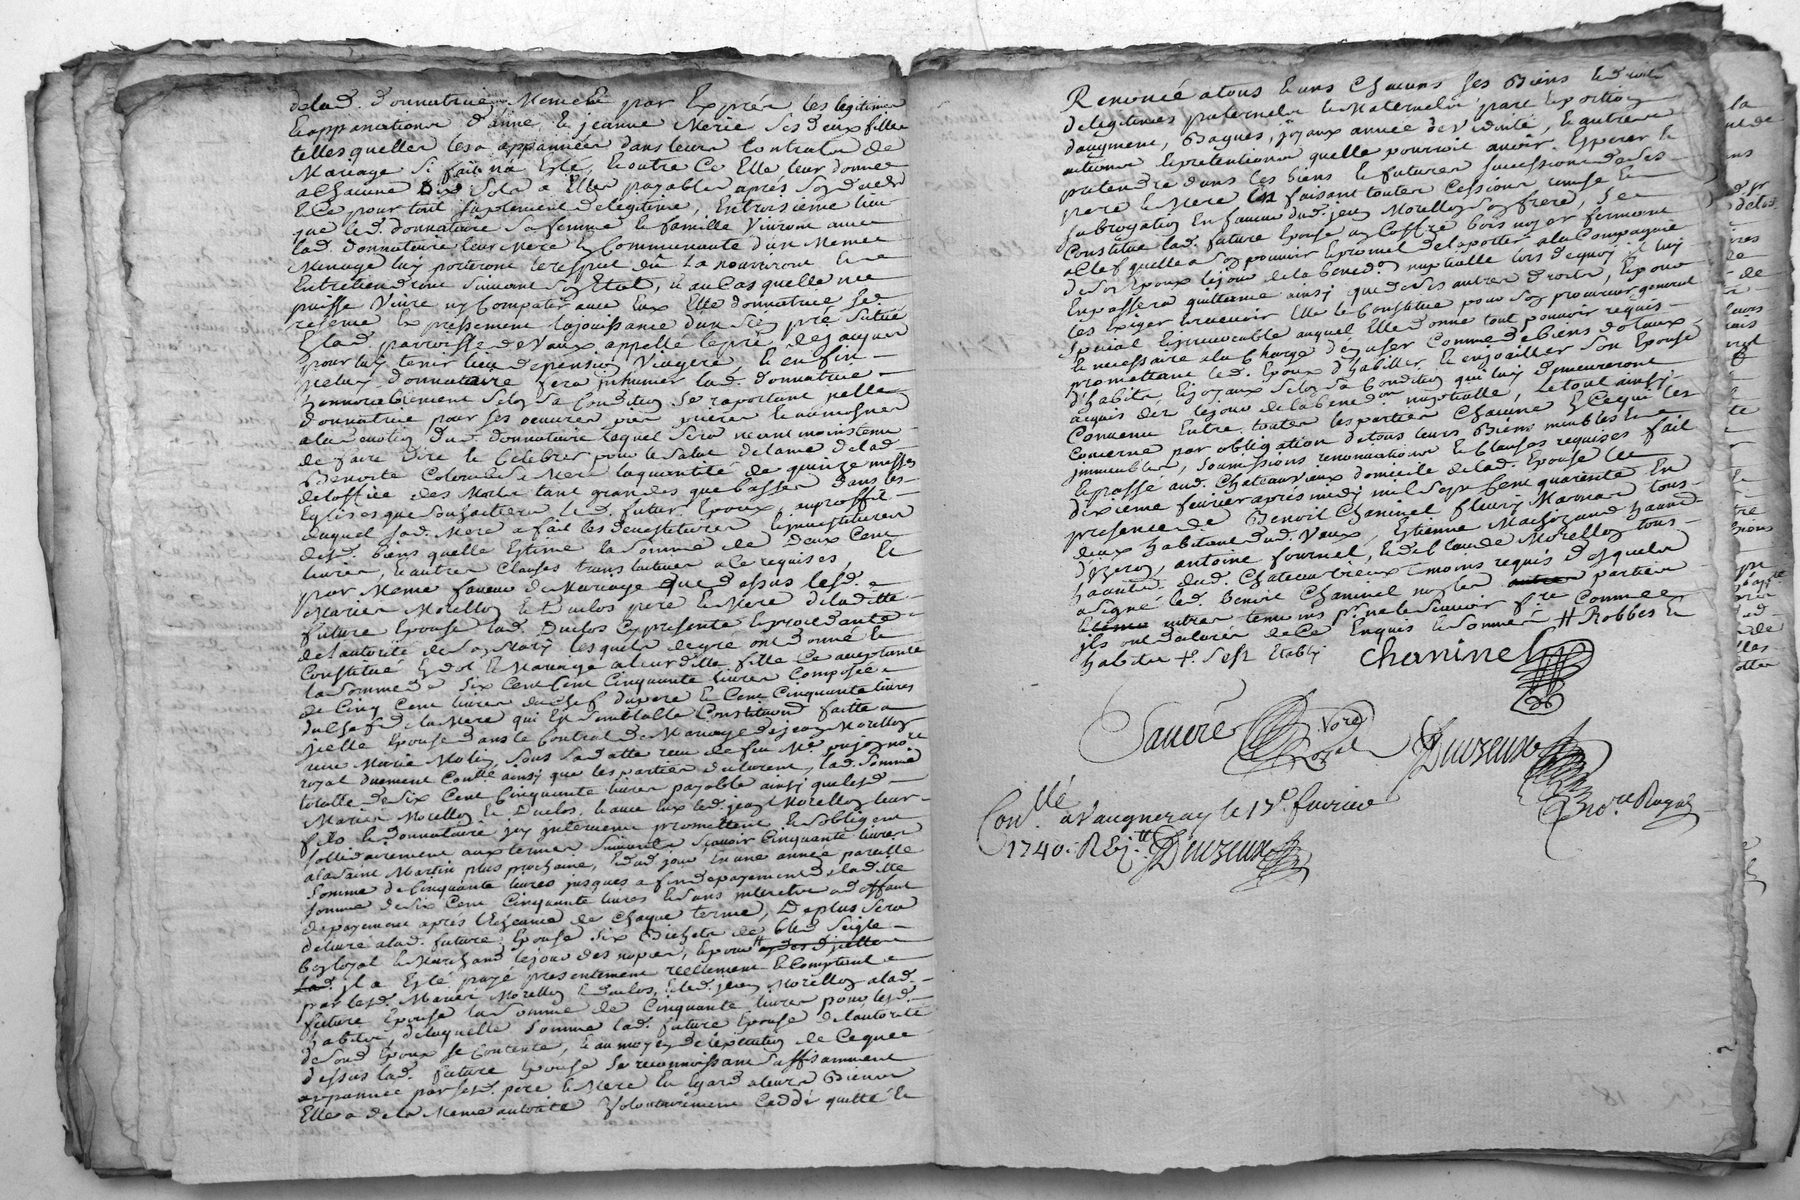 delad. donnatrice, Memem par Exprés les legitimes
Et appanationa d'anne, et jeanne Merie ses deux filles
telles quelles les a appannées dans leurs Contrats de
Mariage si fait n'a Esté, et outre Ce Elle leur donne
a Chacune Dix Sols a Elles payables aprés son deced
Et Ce pour tout suplement de legitime, En troisieme lieu
que led. donnataire sa femme et famille Vivront avec
lad. donnatrice leur Mere En Communauté d'un Meme
Menage luy porteront le respect dû La nourriront et
Entretiendront suivant son Etat, et au Cas quelle ne
puisse Vivre ny Compatir avec Eux Elle donnatrice se
reserve Expressement la jouissance d'un sien pré Situé
En lad. parroisse de Vaux appellé le pré de jacques
pour luy tenir lieu de pension Viagere, et en fin
jceluy donnataire fera jnhumer lad. donnatrice
honnorablement selon sa Condition se raportant jcelle
donnatrice pour ses oeuvres pies priere et aumosnes
a la devotion dud. donnataire laquel sera neant moins tenu
de faire dire et Celebrer pour le Salut de lame de lad.
Benoite Colomb sa Mere la quantité de quinze messes
de l'office des Morts tant grandes que basses dans les
Eglises que souhaittera led. futur Epoux, au proffit
duquel sad. Mere a fait les devestitures et jnvestitures
desd. biens quelle Estime la somme de deux Cent
livres, et autres Clauses translatives a Ce requises, Et
par Meme faveur de Mariage que dessus lesd.
Mariés Morellon et Duclos pere et Mere de laditte
future Epouse lad. Duclos Cy presente et procedante
de l'autorité de son Mary lesquels de gré ont donné et
Constitué En dot et Mariage a leur ditte fille Ce acceptante
la somme de six Cent Cinquante livres Composée
de Cinq Cent livres du chef du pere et Cent Cinquante livres
du chef de la Mere qui Est semblable Constitution faitte a
jcelle Epouse dans le Contrat de Mariage de jean Morellon
avec Marie Molin, sous sa datte receu de feu Me pujol no.re
royal duement Contlé ainsy que les parties declarent, lad. somme
totalle de six Cent Cinquante livres payable ainsy que lesd.
Mariés Morellon et Duclos, et avec eux led. jean Morellon leur
fils et donnataire jcy jntervenu promettent et sobligent
sollidairement aux termes suivants scavoir Cinquante livres
a la saint Martin plus prochaine, et dud. jour En une année pareille
somme de Cinquante livres jusques a fin de payement de laditte
somme de six Cent Cinquante livres et sans interets a deffaut
de payement aprés l'Echeance de Chaque terme, De plus sera
delivré a lad. future Epouse six Bichets de bled seigle
bon loyal et Marchand le jour des nopces,
lad. jl a Esté payé presentement reellement et Comptant
par lesd. Mariés Morellon et Duclos, et led. jean Morellon a lad.
future Epouse la somme de Cinquante livres pour lesd.
habits, de laquelle somme lad. future Epouse de l'autorité
de sond. Epoux se Contente, et au moyen de l'execution de Ce que
dessus lad. future Epouse se reconnoissant suffisamment
appannée par sesd. pere et Mere En Egard a leurs Biens
Elle a de la Meme autorité Volontairement Ceddé quitté et
Renoncé a tous Et uns Chacuns ses Biens et droits
de legitimes paternels et Maternels, part et portion
d'augment, Bagues, joyaux année de Viduité, et autres
actions et pretentions quelle pourroit avoir Esperer et
pretendre dans les biens et futures successions de ses
pere et Mere En faisant toutes Cessions remise et
subrogation En faveur dud. jean Morellon son frere, se
Constitue lad. future Epouse un Coffre bois noyer fermant
a Clef quelle a En son pouvoir et promet de la porter a la Compagnie
de son Epoux le jour de la bened.on nuptialle lors de quoy jl luy
En passera quittance ainsy que de ses autres droits, Et pour
les Exiger et recevoir Elle le Constitue pour son procureur general
special Et jrrevocable auquel Elle donne tout pouvoir requis
et necessaire a la Charge d'en user Comme de biens dotaux
promettant led. Epoux d'habiller et enjoailler son Epouse
d'habits, et joyaux selon sa Condition qui luy demeureront
acquis dez le jour de la bened.on nuptialle, Le tout ainsy
Convenu Entre toutes les parties Chacune En Ce qui les
Concerne par obligation de tous leurs Biens meubles et
jmmeubles, soumissions renonciations et Clauses requises fait
Et passé aud. Chateauvieux domicile de lad. Epouse le
dixieme fevrier aprés midy mil sept Cent quarente En
presence de Benoit Chaninel fleury Marnas tous
deux habitant dud. Vaux, Estienne habitt
d'yzeron, antoine fournel, et de Claude Morellon tous
habitts. dud. Chateauvieux temoins requis desquels
a signé led. Benoit Chaninel non les parties
et autres temoins pr. ne le Scavoir f.re Comme
jls ont declarés de Ce Enquis et sommés # Robbes et
habits #. s'est Etably
Chaninel
Sauvré
Dervzeux
No.re Royal
Con.llé a Vaugneray le 17.e fevrier
1740. R